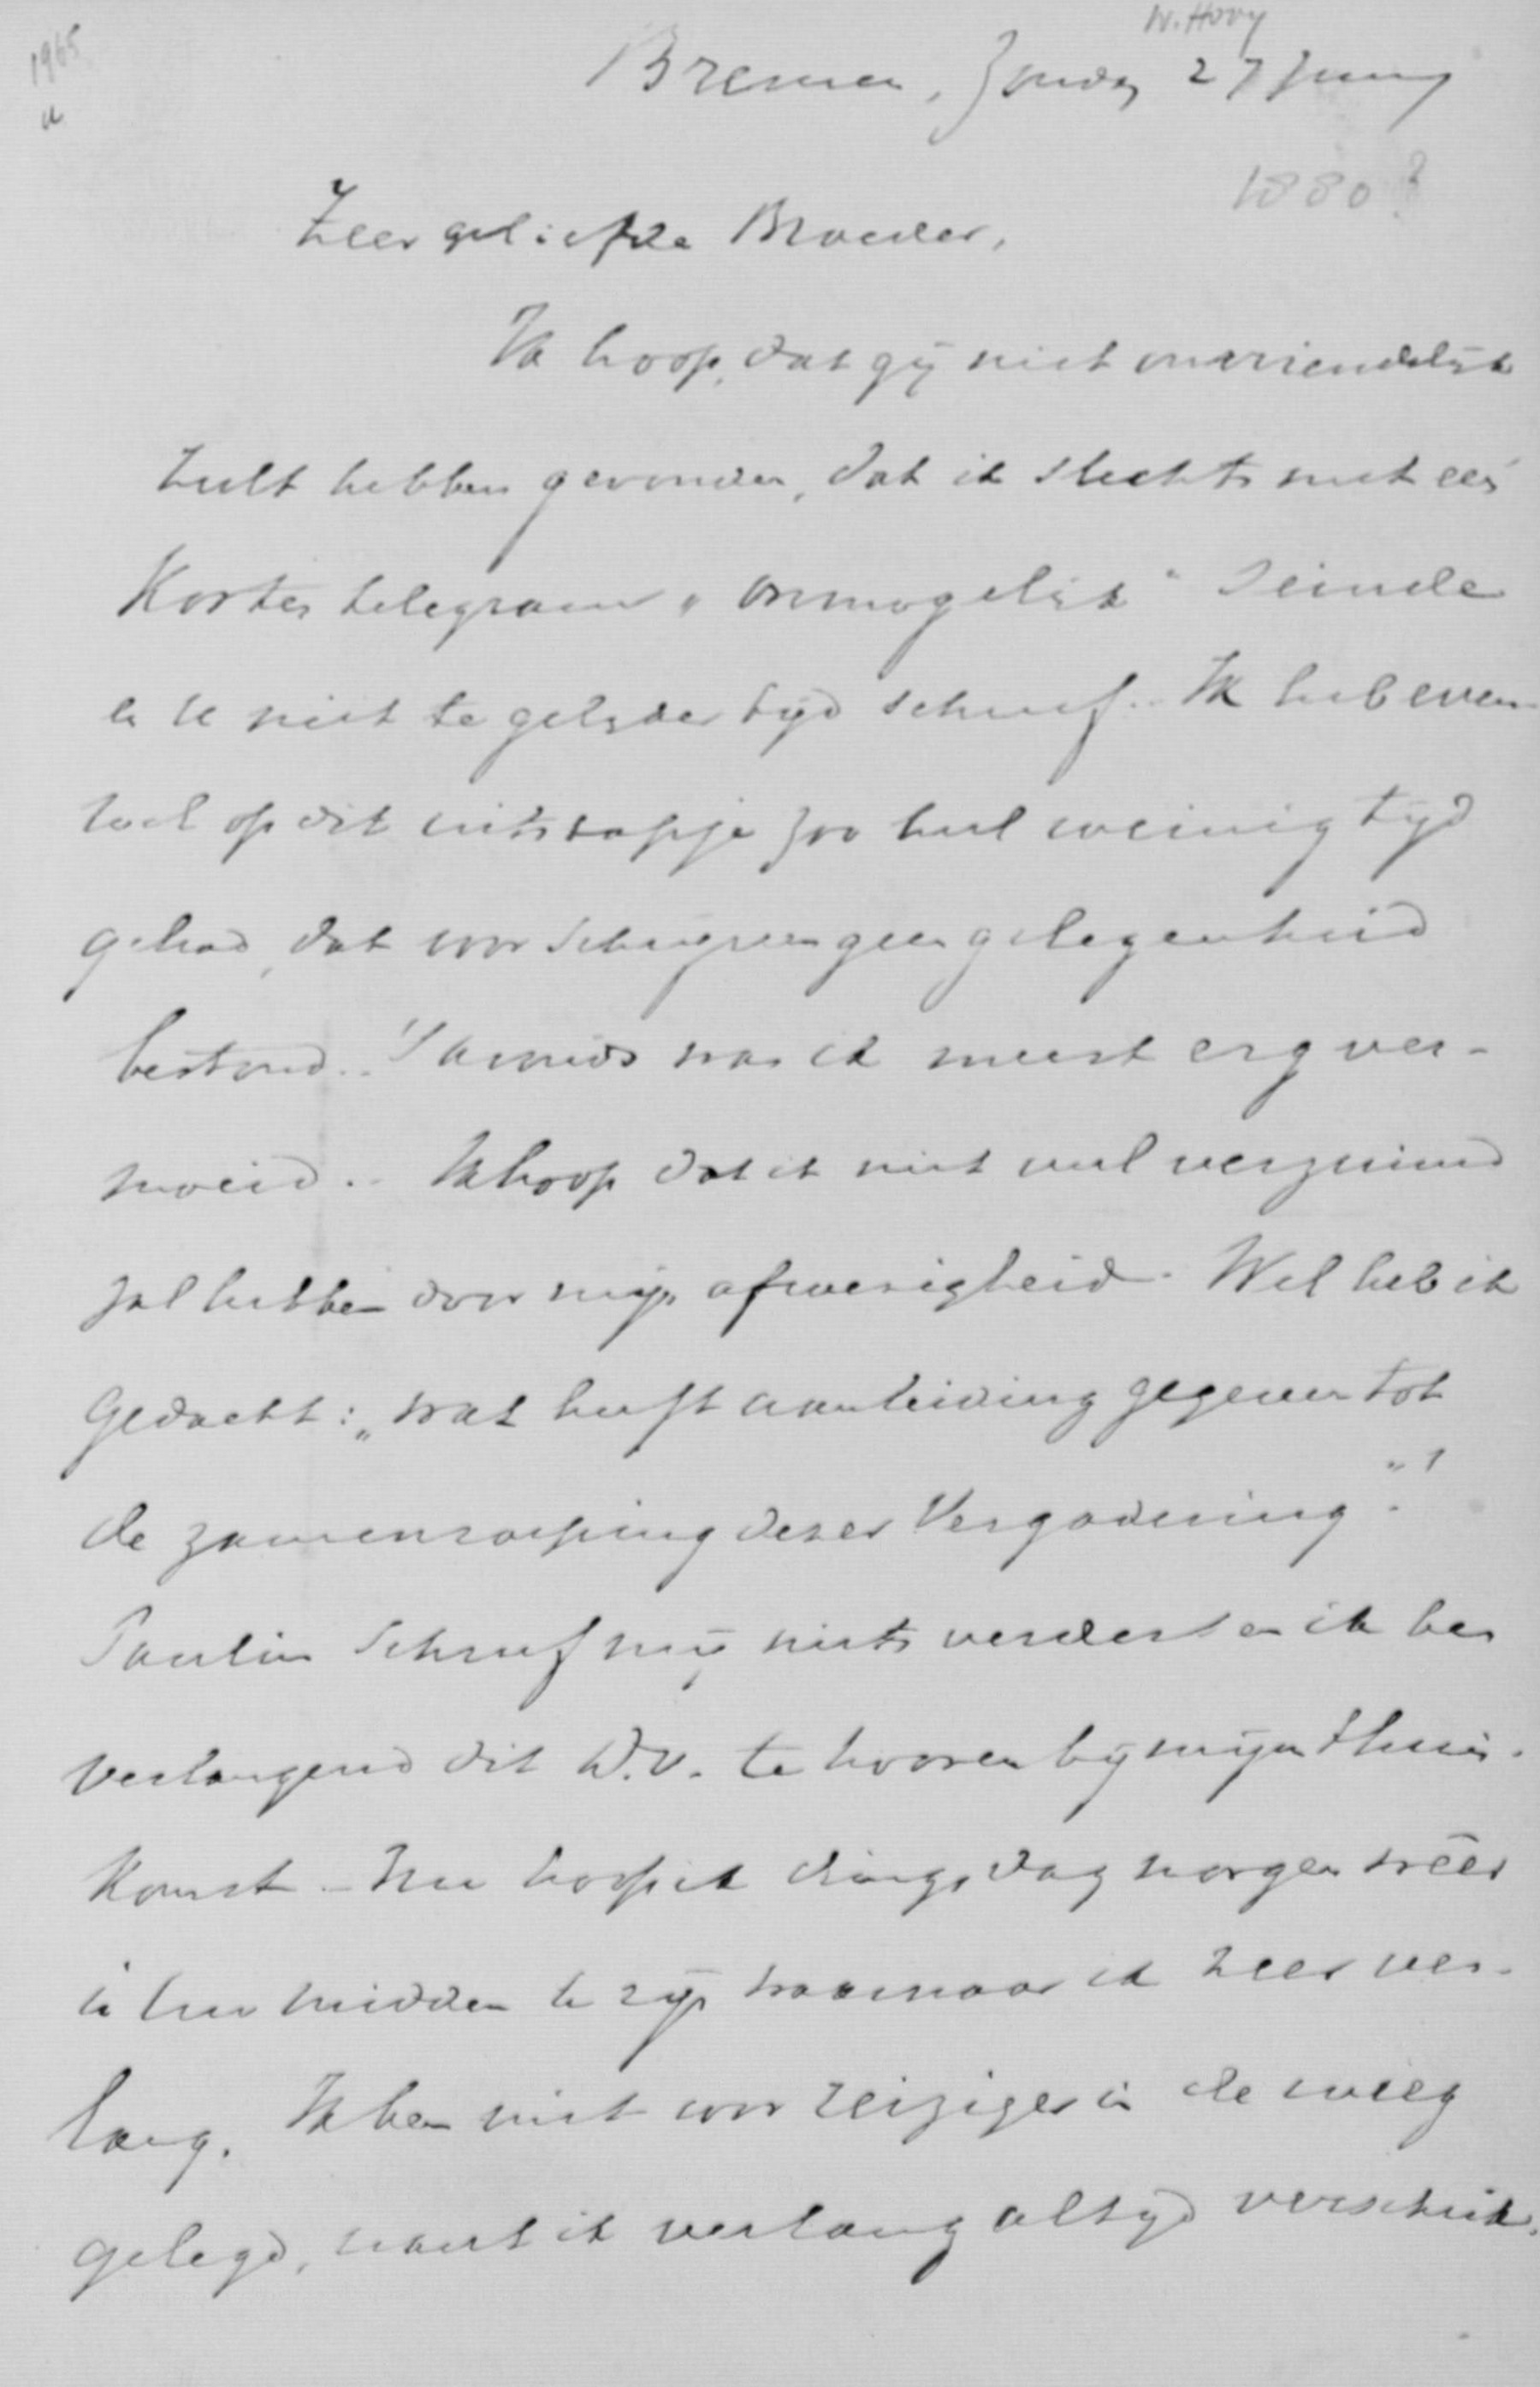 1965
a
W. Hovy
Bremen, Zondag 27 Juny
1880?
Zeer geliefde Broeder,
Ik hoop, dat gij niet onvriendelijk
zult hebben gevonden, dat ik slechts met een
Korten telegram „onmogelijk" seinde
en U niet te gelijker tijd schreef. Ik heb even-
wel op dit uitstapje zoo heel weinig tijd
gehad, dat voor schrijven geen gelegenheid
bestond. 's avonds was ik meest erg ver-
moeid. Ik hoop dat ik niet veel verzuimd
zal hebben door mijn afwezigheid. Wel heb ik
gedacht: „wat heeft aanleiding gegeven tot
de zamenroeping dezer Vergadering"?
Paulin schreef mij niets verders en ik ben
verlangend dit D.V. te hooren bij mijn thuis-
komst. Nu hoop ik dingsdag morgen wêer
in Uw midden te zijn waarnaar ik zeer ver-
lang. Ik ben niet voor reiziger in de wieg
gelegd, want ik verlang altijd verschrik-